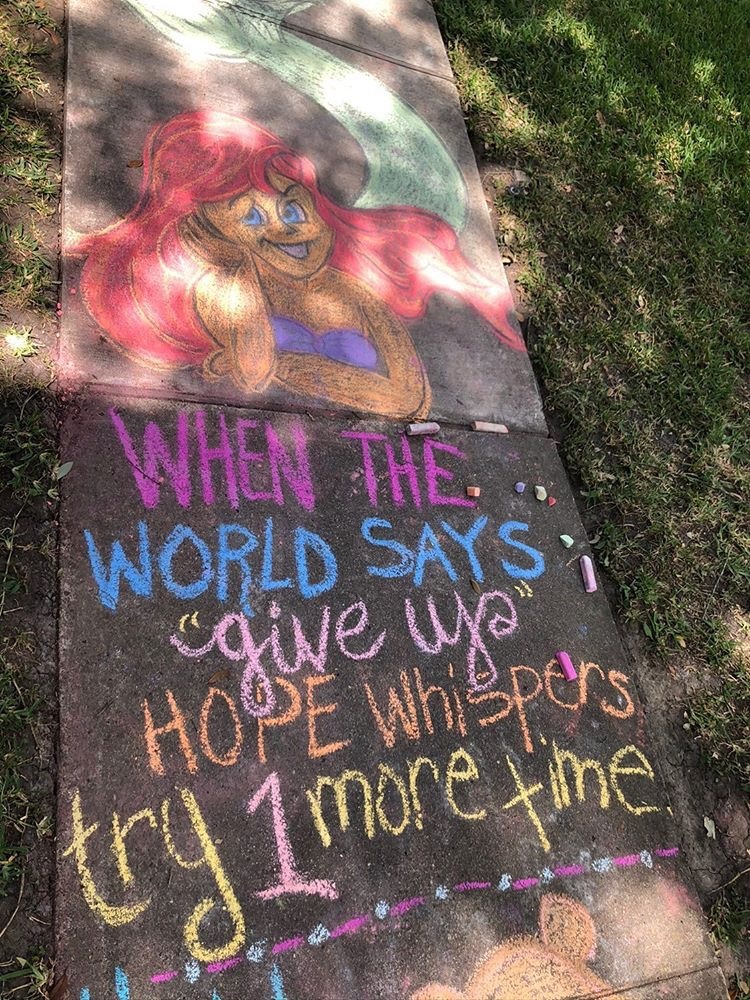 WHEN THE
WORLD SAYS
"give up"
HOPE Whispers
try 1 more time.